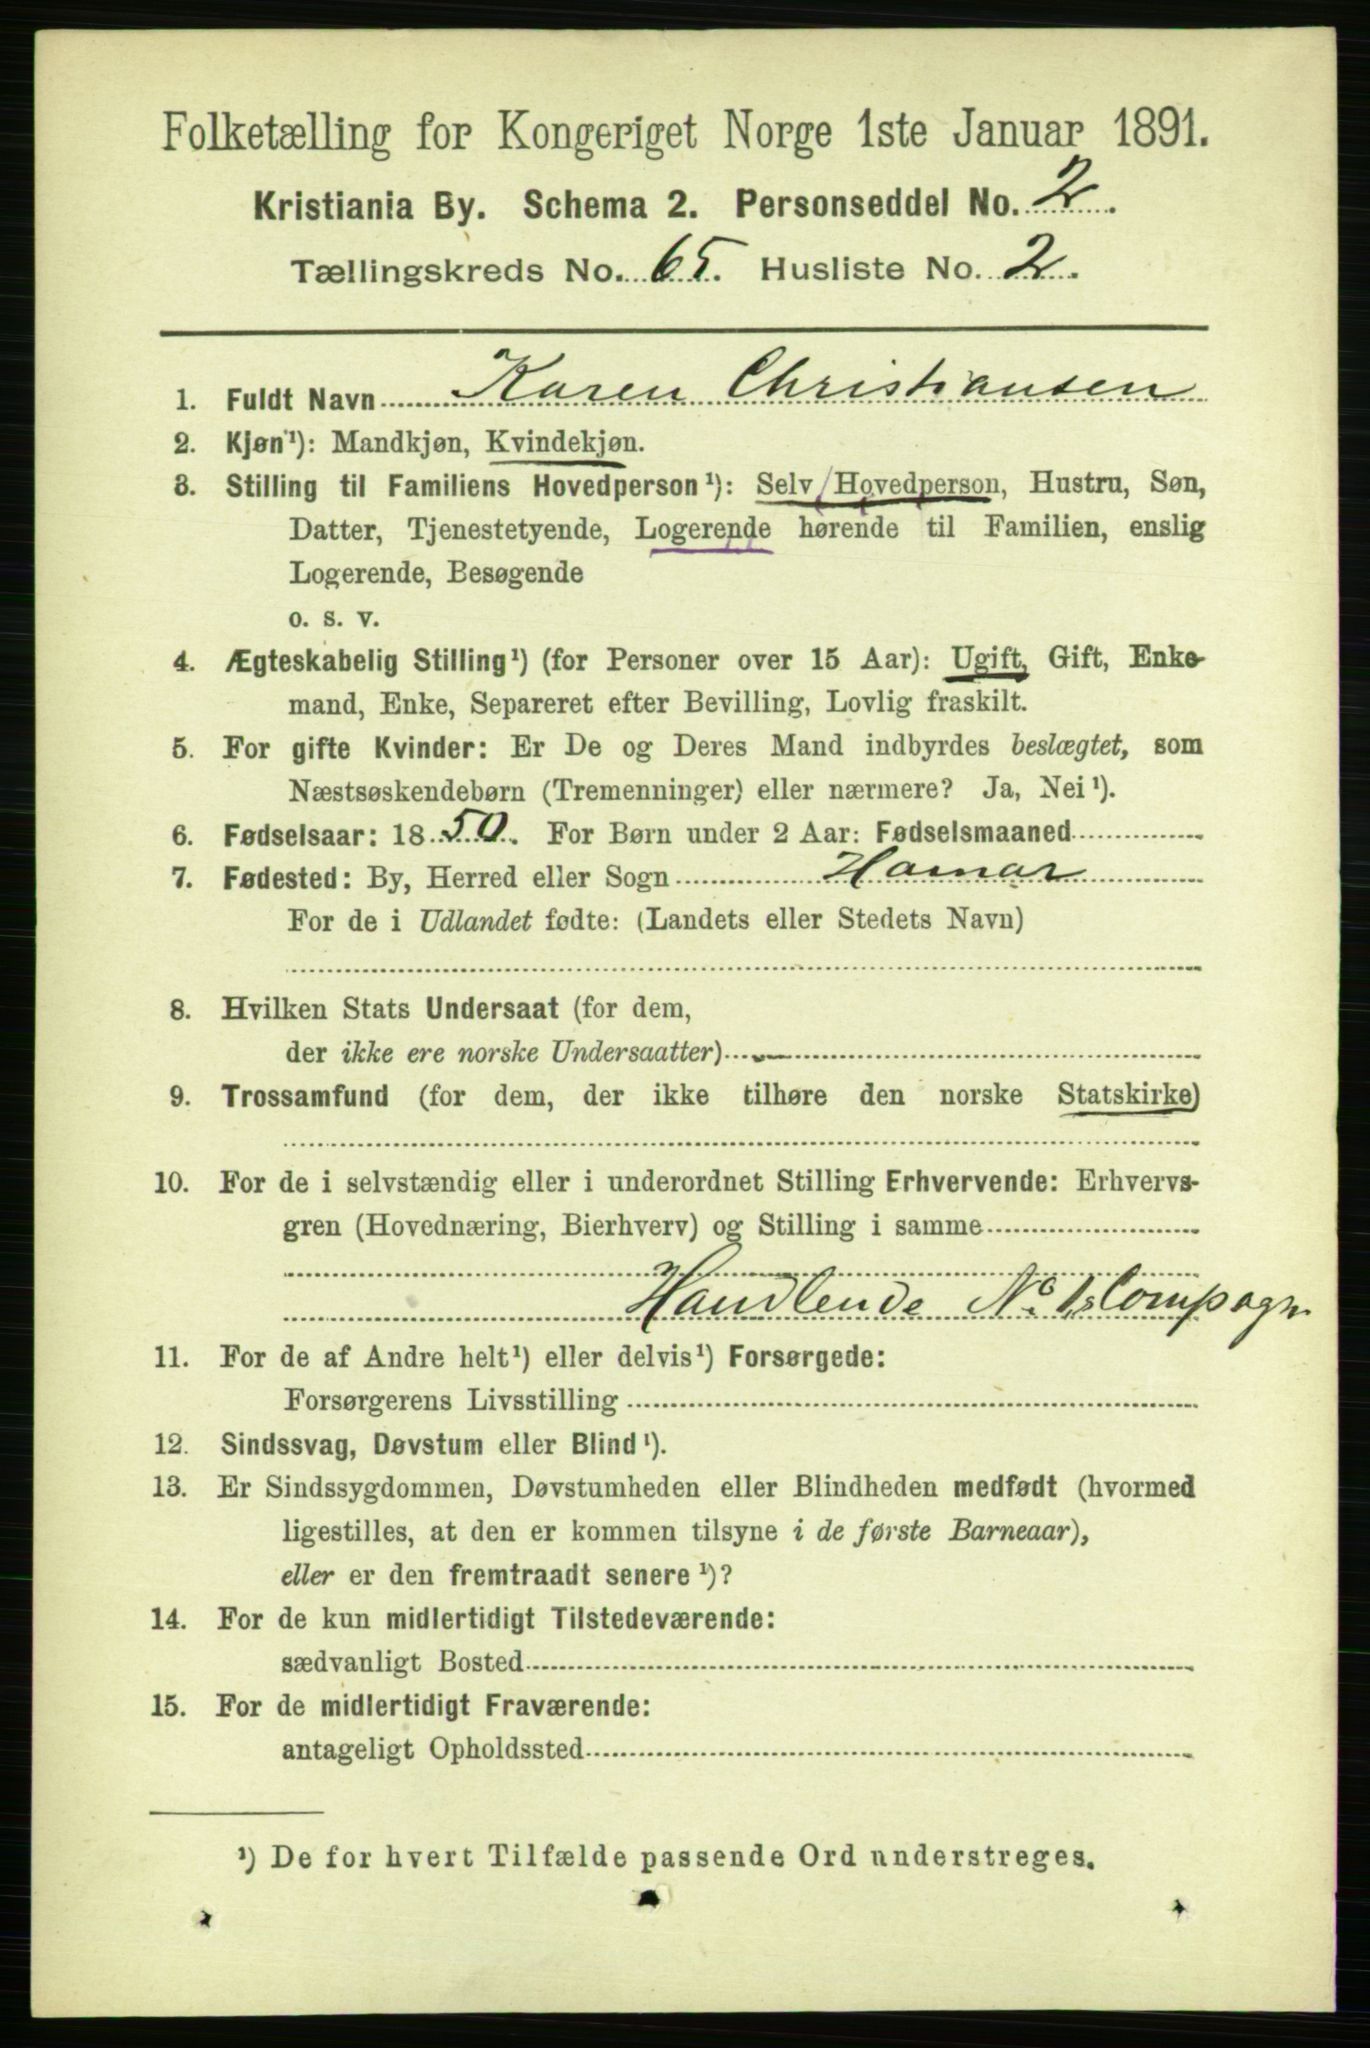 Folketælling for Kongeriget Norge 1ste Januar 1891.
Kristiania By. Schema 2. Personseddel No. 2.
Tællingskreds No. 65. Husliste No. 2.
1. Fuldt Navn Karen Christiansen
2. Kjøn¹): Mandkjøn, Kvindekjøn.
3. Stilling til Familiens Hovedperson¹): Selv Hovedperson, Hustru, Søn,
Datter, Tjenestetyende, Logerende hørende til Familien, enslig
Logerende, Besøgende
o. s. v.
4. Ægteskabelig Stilling¹) (for Personer over 15 Aar): Ugift, Gift, Enke-
mand, Enke, Separeret efter Bevilling, Lovlig fraskilt.
5. For gifte Kvinder: Er De og Deres Mand indbyrdes beslægtet, som
Næstsøskendebørn (Tremenninger) eller nærmere? Ja, Nei¹).
6. Fødselsaar: 1850. For Børn under 2 Aar: Fødselsmaaned
7. Fødested: By, Herred eller Sogn Hamar
For de i Udlandet fødte: (Landets eller Stedets Navn)
8. Hvilken Stats Undersaat (for dem,
der ikke ere norske Undersaatter)
9. Trossamfund (for dem, der ikke tilhøre den norske Statskirke)
10. For de i selvstændig eller i underordnet Stilling Erhvervende: Erhvervs-
gren (Hovednæring, Bierhverv) og Stilling i samme
Handlende No 1s Compagn
11. For de af Andre helt¹) eller delvis¹) Forsørgede:
Forsørgerens Livsstilling
12. Sindssvag, Døvstum eller Blind¹).
13. Er Sindssygdommen, Døvstumheden eller Blindheden medfødt (hvormed
ligestilles, at den er kommen tilsyne i de første Barneaar),
eller er den fremtraadt senere¹)?
14. For de kun midlertidigt Tilstedeværende:
sædvanligt Bosted
15. For de midlertidigt Fraværende:
antageligt Opholdssted
¹) De for hvert Tilfælde passende Ord understreges.